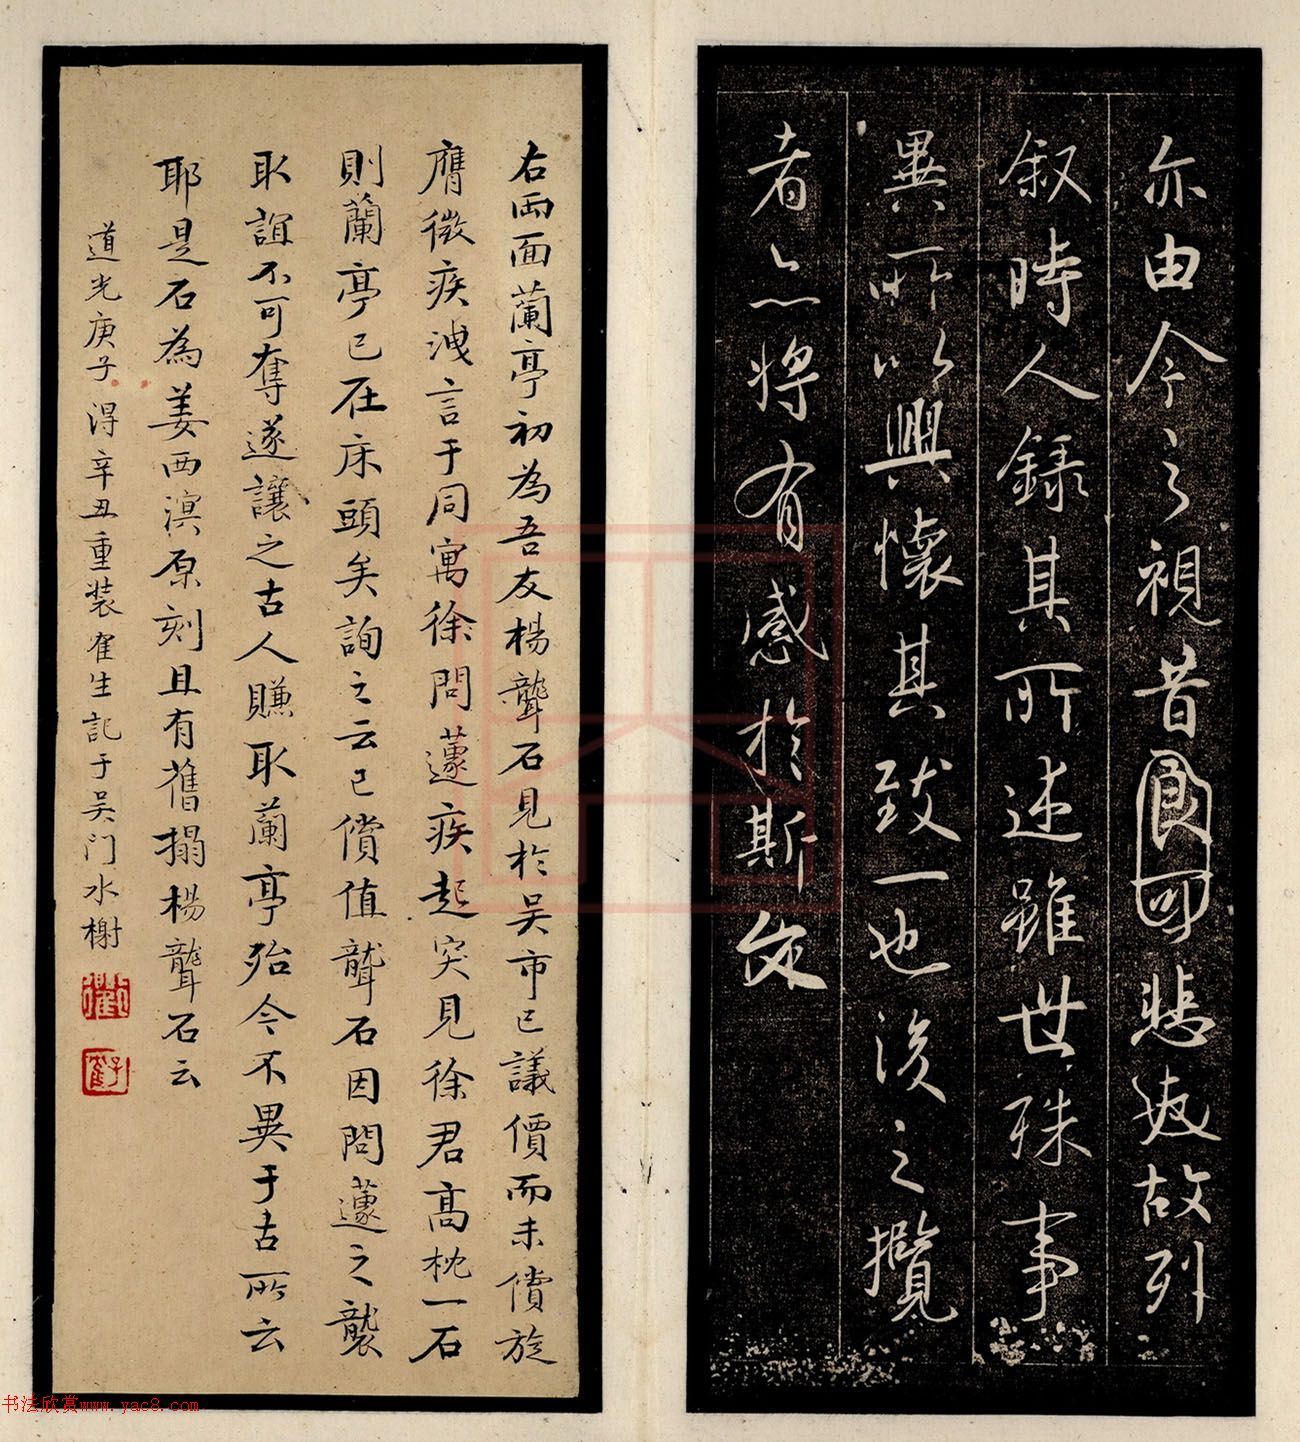 亦由今之視昔良可悲夫故列
叙時人錄其所述雖世殊事
異所以興懷其致一也後之攬
者亦將有感於斯文
右兩面蘭亭初為吾友楊聾石見於吳市已議價而未償旋
膺微疾洩言于同寓徐問蘧疾起突見徐君高枕一石
則蘭亭已在床頭矣詢之云已償值聾石因問蘧之襲
取誼不可奪遂讓之古人賺取蘭亭殆今不異于古所云
耶是石為姜西溟原刻且有舊搨楊聾石云
道光庚子得辛丑重裝隺生記于吳門水榭
书法欣赏www.yac8.com